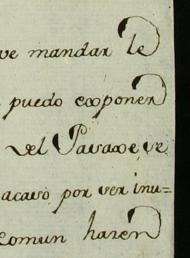 ve mandar le
puedo exponer
del Paraxe ve
acaso por ver inu=
comun hazen